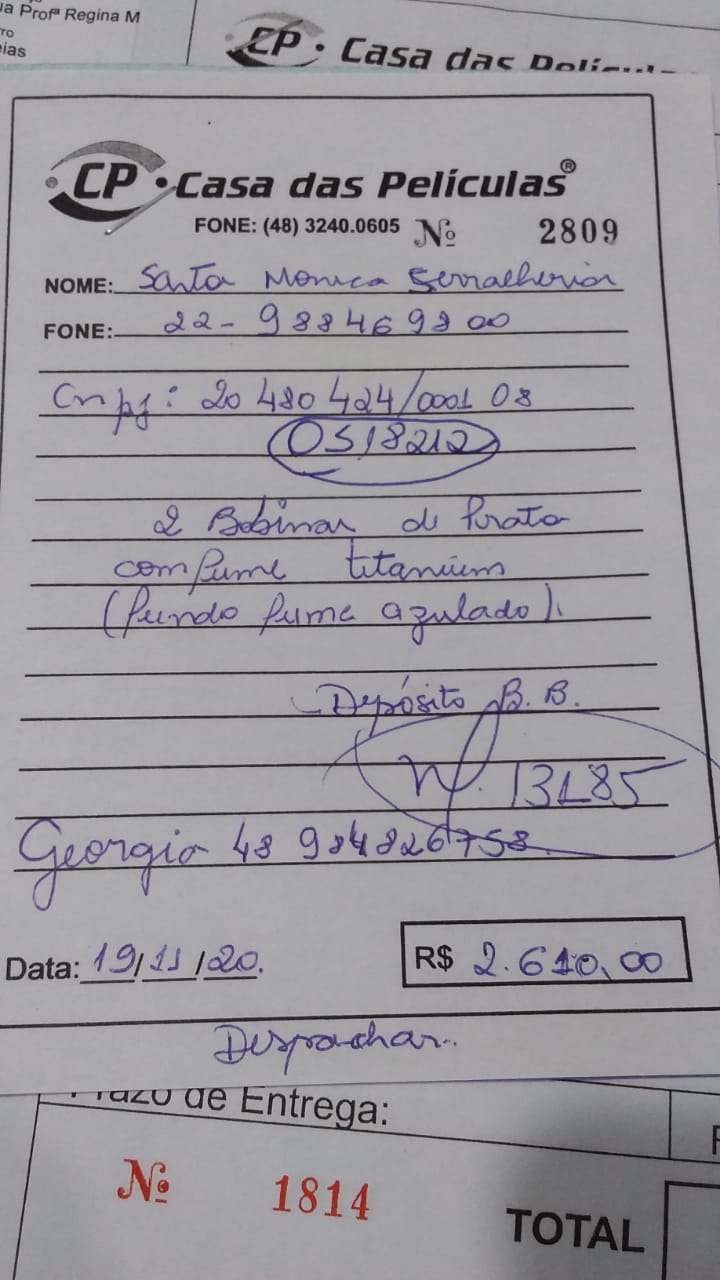 ua Profª Regina M
ro
ias
CP • Casa das
CP • Casa das Películas®
FONE: (48) 3240.0605 Nº 2809
NOME: Santa Monica Serralheria
FONE: 22-988469800
Cnpj: 20 480 424/0001 08
OS18212
2 Bobinas de Prata
com fume titanium
(fundo fume azulado).
Depósito B.B.
N. 13185
Georgia 48 984826758
Data: 19/11/20. R$ 2.610,00
Despachar..
razo de Entrega:
Nº 1814
TOTAL